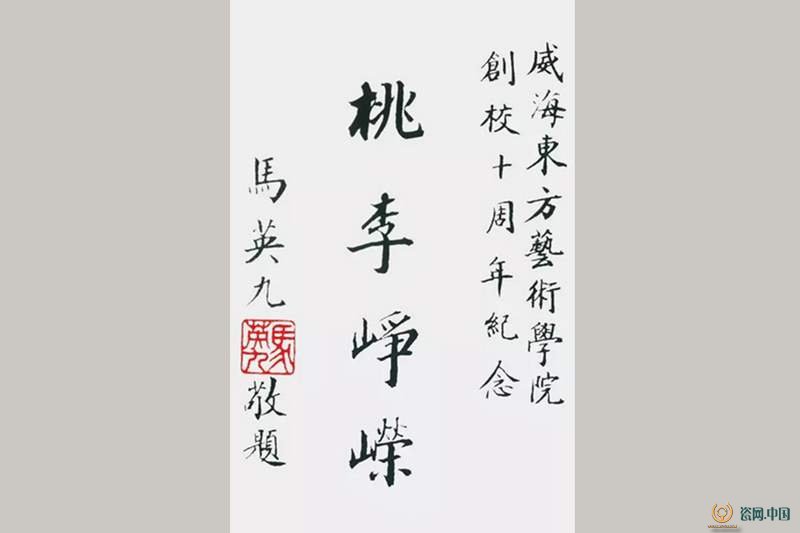 威海東方藝術學院
創校十周年紀念
桃李崢嶸
馬英九
馬英九
敬題
瓷网.中国